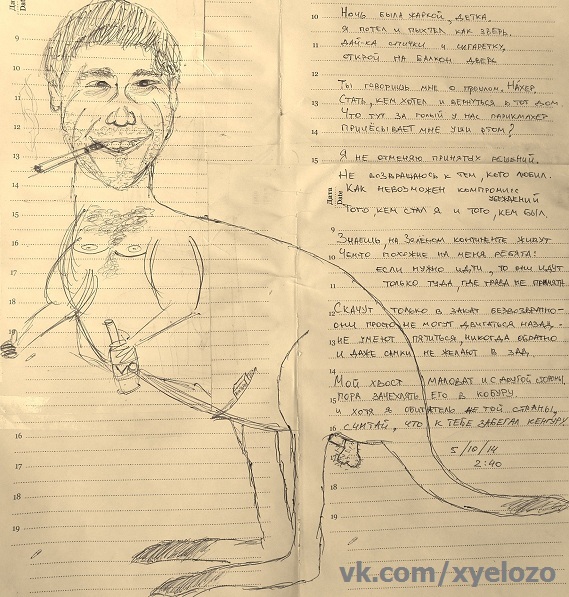 Дата
Date
9
10
11
12
13
14
15
16
17
18
16
17
18
19
10
НОЧЬ БЫЛА ЖАРКОЙ, ДЕТКА.
Я ПОТЕЛ И ПЫХТЕЛ КАК ЗВЕРЬ.
11
ДАЙ-КА СПИЧКИ И СИГАРЕТКУ,
ОТКРОЙ НА БАЛКОН ДВЕРЬ
12
ТЫ ГОВОРИШЬ МНЕ О ПРОШЛОМ. НА́ХЕР.
13
СТАТЬ, КЕМ ХОТЕЛ И ВЕРНУТЬСЯ В ТОТ ДОМ.
ЧТО ТУТ ЗА ГОЛЫЙ У НАС ПАРИКМАХЕР
14
ПРИЧЁСЫВАЕТ МНЕ УШИ РТОМ?
15
Я НЕ ОТМЕНЯЮ ПРИНЯТЫХ РЕШЕНИЙ.
НЕ ВОЗВРАЩАЮСЬ К ТЕМ, КОГО ЛЮБИЛ.
Дата
Date
КАК НЕВОЗМОЖЕН КОМПРОМИСС
УБЕЖДЕНИЙ
ТОГО, КЕМ СТАЛ Я И ТОГО, КЕМ БЫЛ.
9
ЗНАЕШЬ, НА ЗЕЛЕНОМ КОНТИНЕНТЕ ЖИВУТ
10
ЧЕМ-ТО ПОХОЖИЕ НА МЕНЯ РЕБЯТА:
ЕСЛИ НУЖНО ИДТИ, ТО ОНИ ИДУТ
11
ТОЛЬКО ТУДА, ГДЕ ТРАВА НЕ ПРИМЯТА.
12
СКАЧУТ ТОЛЬКО В ЗАКАТ БЕЗВОЗВРАТНО-
ОНИ ПРОСТО НЕ МОГУТ ДВИГАТЬСЯ НАЗАД.
13
НЕ УМЕЮТ ПЯТИТЬСЯ, НИКОГДА ОБРАТНО
И ДАЖЕ САМКИ НЕ ЖЕЛАЮТ В ЗАД.
14
МОЙ ХВОСТ МАЛОВАТ И С ДРУГОЙ СТОРОНЫ,
15
ПОРА ЗАЧЕХЛЯТЬ ЕГО В КОБУРУ.
И ХОТЯ Я ОБИТАТЕЛЬ НЕ ТОЙ СТРАНЫ,
16
СЧИТАЙ, ЧТО К ТЕБЕ ЗАБЕГАЛ КЕНГУРУ.
5/10/14
2:40
18
19
vk.com/xyelozo